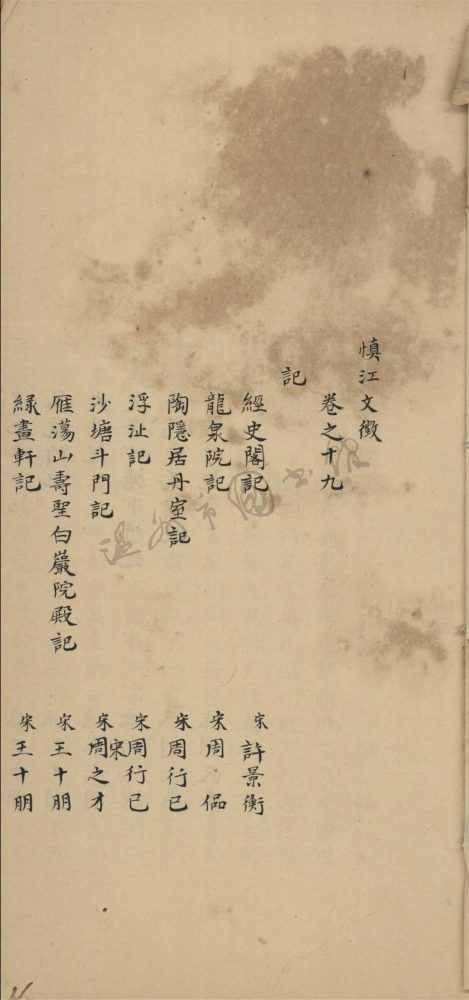 慎江文徵
卷之十九
記
經史閣記 宋 許景衡
龍泉院記 宋 周
陶隱居丹室記 宋 周行已
浮沚記 宋 周行已
沙塘斗門記 宋 宋 周之才
雁蕩山壽聖白巖院殿記 宋 王十朋
綠畫軒記 宋 王十朋
溫州市圖書館